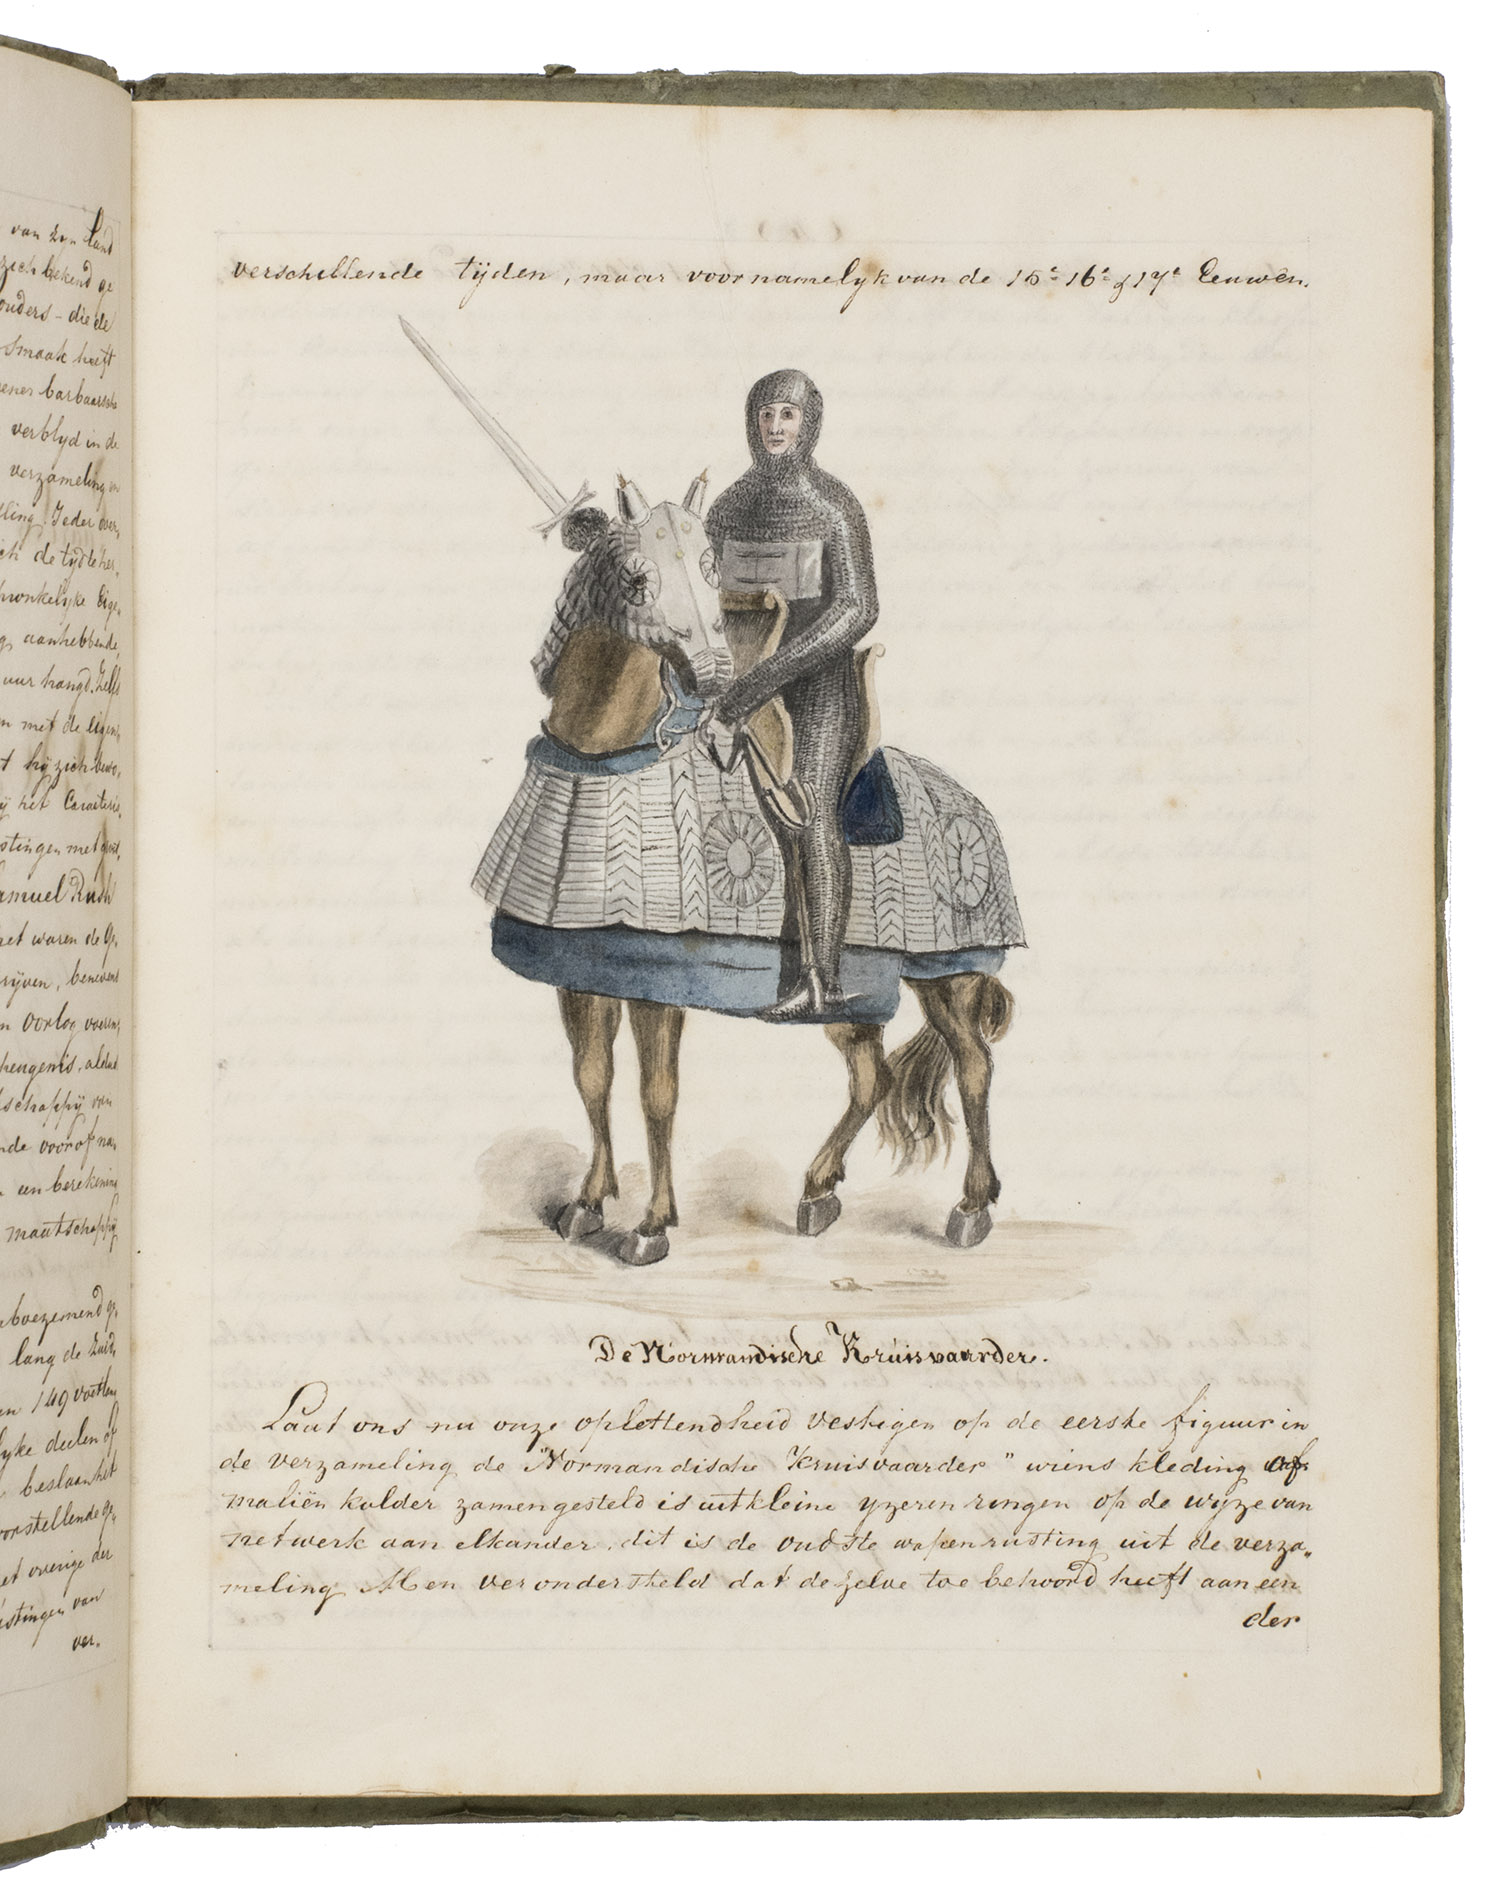 van zyn land
zich bekend ge
ouders - die de
smaak heeft
barbaarsche
verblyd in de
verzameling en
Ieder over,
de tyd te her,
aanhebbende,
uur hangd. Zelfs
met de eigen,
hy zich
het Caracteris,
met
Samuel Rush
het waren de ge,
benevens
Oorlog voeren,
van
voorof na,
een berekening
maatschappy
boezemend ge,
lang de Zuid,
149 voeten
deelen of
beslaan het
voorstellende ge,
overige der
van
ver.
verschillende tijden, maar voornamelyk van de 15e 16e & 17e Eeuwen.
De Normandische Kruisvaarder.
Laat ons nu onze oplettendheid vestigen op de eerste figuur in
de verzameling de "Normandische Kruisvaarder" wiens kleding of
maliën kolder zamengesteld is uit kleine yzeren ringen op de wyze van
netwerk aan elkander, dit is de oudste wapenrusting uit de verza„
meling Men verondersteld dat dezelve toe behoord heeft aan een
der